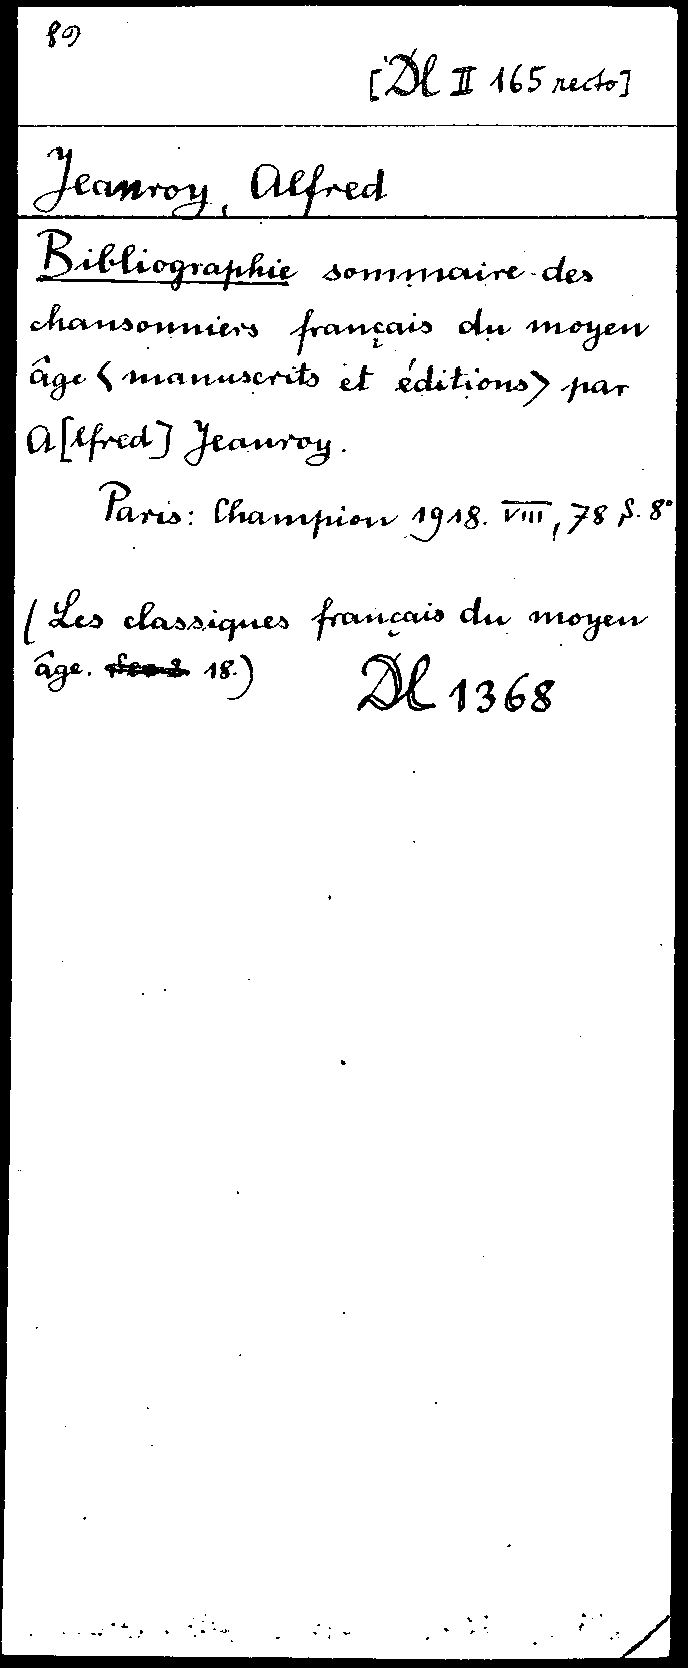 89
[Dl II 165 recto]
Jeanroy, Alfred
Bibliographie sommaire des
chansonniers français du moyen
âge <manuscrits et éditions> par
A[lfred] Jeanroy.
Paris: Champion 1918. VIII, 78 S. 8°
(Les classiques français du moyen
âge. 18.)
Dl 1368